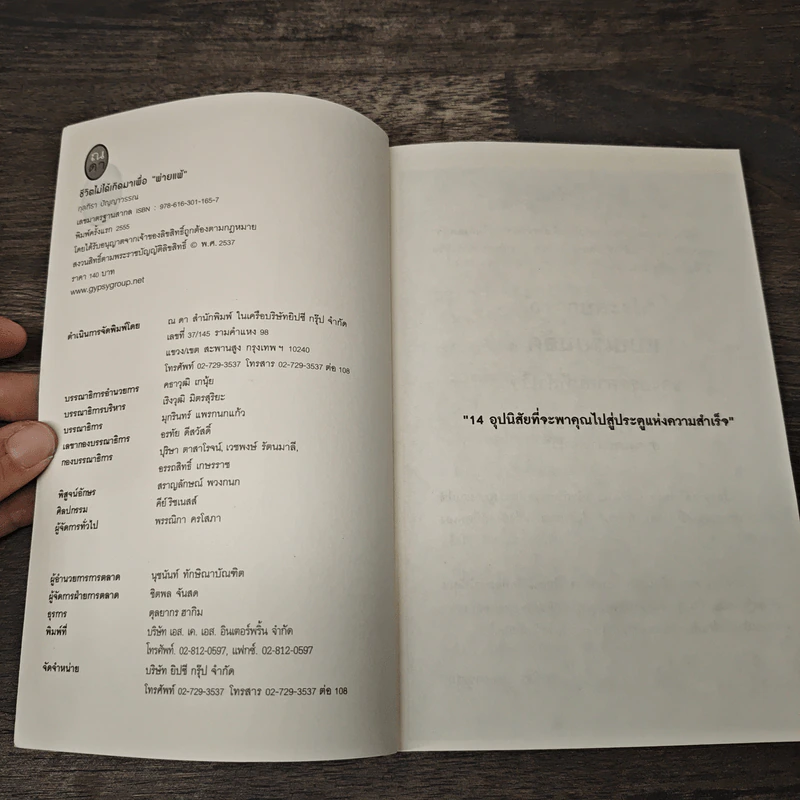 ณ ดา
ชีวิตไม่ได้เกิดมาเพื่อ "พ่ายแพ้"
กุลภิรา ปัญญาวรรณ
เลขมาตรฐานสากล ISBN : 978-616-301-165-7
พิมพ์ครั้งแรก 2555
โดยได้รับอนุญาตจากเจ้าของลิขสิทธิ์ถูกต้องตามกฎหมาย
สงวนสิทธิ์ตามพระราชบัญญัติลิขสิทธิ์ © พ.ศ. 2537
ราคา 140 บาท
www.gypsygroup.net
ดำเนินการจัดพิมพ์โดย ณ ดา สำนักพิมพ์ ในเครือบริษัทยิปซี กรุ๊ป จำกัด
เลขที่ 37/145 รามคำแหง 98
แขวง/เขต สะพานสูง กรุงเทพ ฯ 10240
โทรศัพท์ 02-729-3537 โทรสาร 02-729-3537 ต่อ 108
บรรณาธิการอำนวยการ คธาวุฒิ เกนุ้ย
บรรณาธิการบริหาร เริงวุฒิ มิตรสุริยะ
บรรณาธิการ มุกรินทร์ แพรกนกแก้ว
เลขากองบรรณาธิการ อรทัย ดีสวัสดิ์
กองบรรณาธิการ ปุริษา ตาสาโรจน์, เวชพงษ์ รัตนมาลี,
อรรถสิทธิ์ เกษรราช
พิสูจน์อักษร สราญลักษณ์ พวงกนก
ศิลปกรรม คีย์ริชเนสส์
ผู้จัดการทั่วไป พรรณิกา ครโสภา
ผู้อำนวยการการตลาด นุชนันท์ ทักษิณาบัณฑิต
ผู้จัดการฝ่ายการตลาด ชิตพล จันสด
ธุรการ ตุลยากร ฮากิม
พิมพ์ที่ บริษัท เอส. เค. เอส. อินเตอร์พริ้น จำกัด
โทรศัพท์. 02-812-0597, แฟกซ์. 02-812-0597
จัดจำหน่าย บริษัท ยิปซี กรุ๊ป จำกัด
โทรศัพท์ 02-729-3537 โทรสาร 02-729-3537 ต่อ 108
"14 อุปนิสัยที่จะพาคุณไปสู่ประตูแห่งความสำเร็จ"